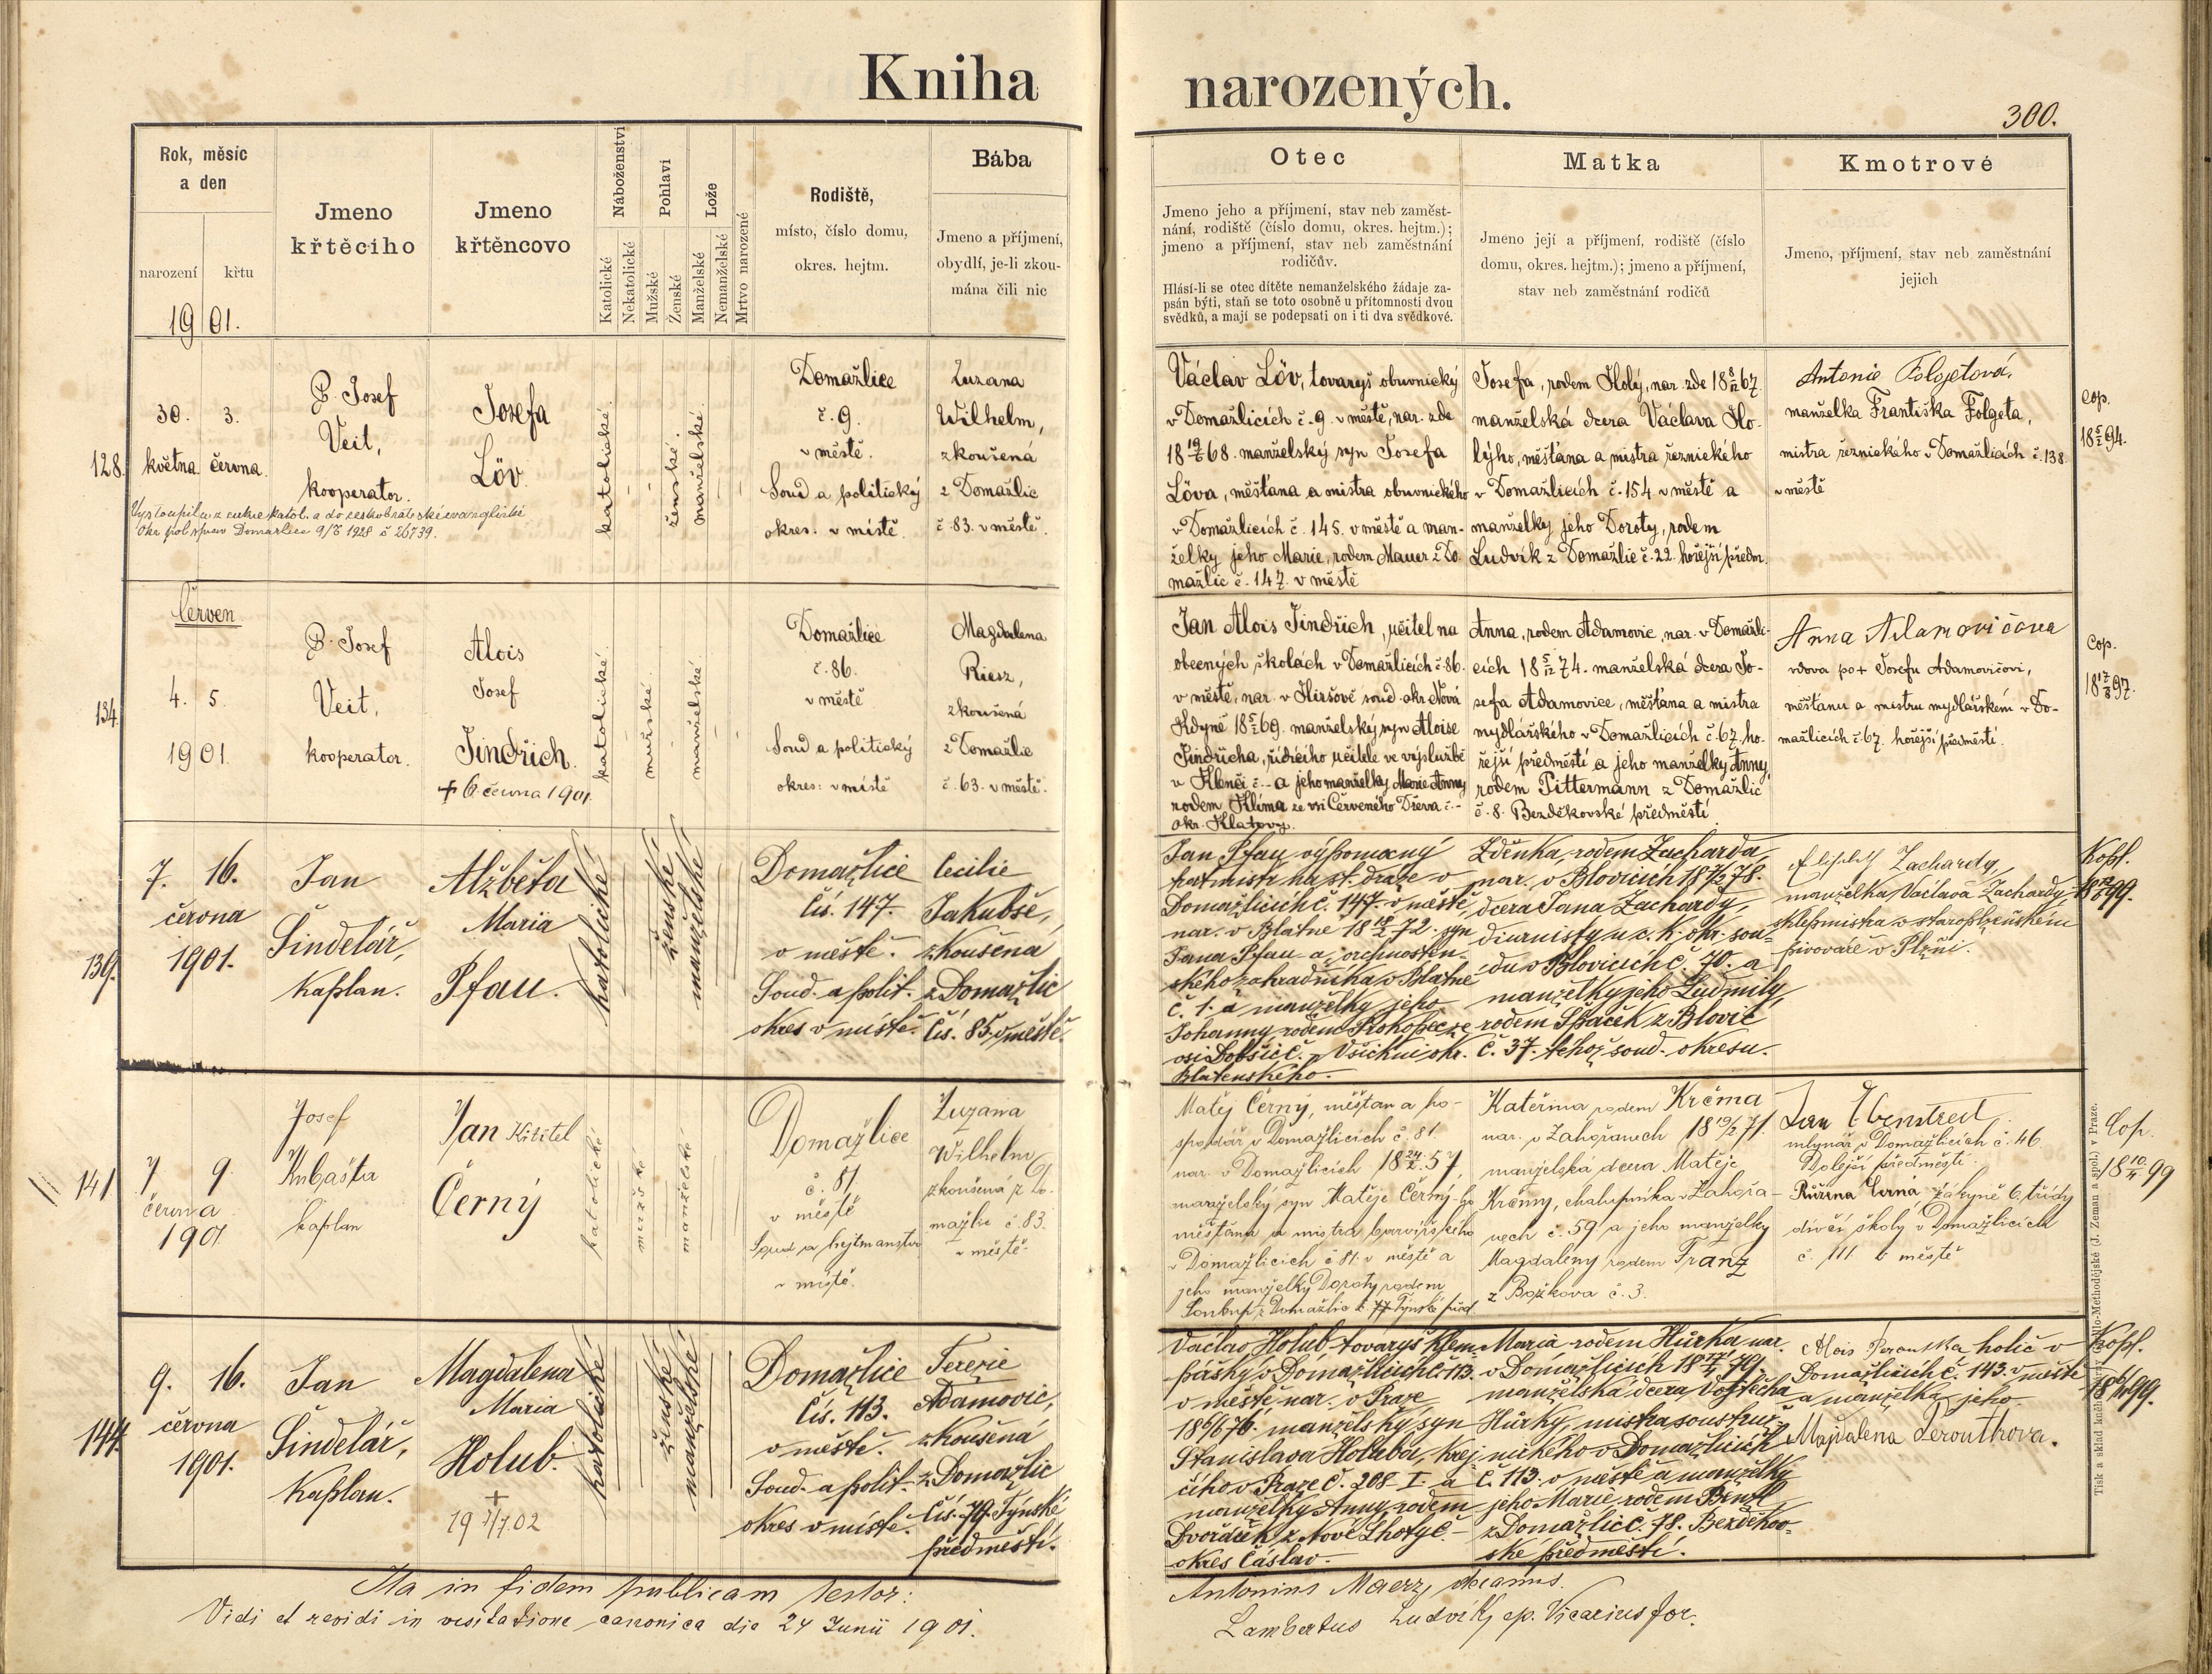 Kniha narozených.
300.
Rok, měsíc
a den
narození
křtu
1901.
Jmeno
křtěcího
Jmeno
křtěncovo
Náboženství
Katolické
Nekatolické
Pohlaví
Mužské
Ženské
Lože
Manželské
Nemanželské
Mrtvo narozené
Rodiště,
místo, číslo domu,
okres. hejtm.
Bába
Jmeno a příjmení,
obydlí, je-li zkou-
mána čili nic
Otec
Jmeno jeho a příjmení, stav neb zaměst-
nání, rodiště (číslo domu, okres. hejtm.);
jmeno a příjmení, stav neb zaměstnání
rodičův.
Hlásí-li se otec dítěte nemanželského žádaje za-
psán býti, staň se toto osobně u přítomnosti dvou
svědků, a mají se podepsati on i ti dva svědkové.
Matka
Jmeno její a příjmení, rodiště (číslo
domu, okres. hejtm.); jmeno a příjmení,
stav neb zaměstnání rodičů
Kmotrové
Jmeno, příjmení, stav neb zaměstnání
jejich
128.
30. 3.
května června
P. Josef
Veit,
kooperator.
Josefa
Löv.
katolické.
ženské.
manželské.
Domažlice
č. 9.
v městě.
Soud a politický
okres. v místě.
Zuzana
Wilhelm,
zkoušená
z Domažlic
č. 83. v městě.
Vystoupila z církve katol. a do českobratrské evangelické
Okr. pol. správ Domažlice 9/8 1928 č 26739.
Václav Löv, tovaryš obuvnický
v Domažlicích č. 9. v městě, nar. zde
18 19/6 68. manželský syn Josefa
Löva, měšťana a mistra obuvnického
v Domažlicích č. 145. v městě a man-
želky jeho Marie, rodem Mauer z Do-
mažlic č. 147. v městě
Josefa, rodem Holý, nar. zde 18 8/12 67.
manželská dcera Václava Ho-
lýho, měšťana a mistra řeznického
v Domažlicích č. 154. v městě a
manželky jeho Doroty, rodem
Ludvík z Domažlic č. 22. hořejší předm.
Antonie Folgetová,
manželka Františka Folgeta,
mistra řeznického v Domažlicích č. 138.
v městě
Cop.
18 5/2 94.
134.
Červen
4. 5.
1901.
P. Josef
Veit,
kooperator.
Alois
Josef
Jindřich.
+ 6. června 1901.
katolické.
mužské.
manželské.
Domažlice
č. 86.
v městě
Soud a politický
okres: v místě
Magdalena
Riesz,
zkoušená
z Domažlic
č. 63. v městě.
Jan Alois Jindřich, učitel na
obecných školách v Domažlicích č. 86.
v městě, nar. v Hiršově soud. okr. Nová
Kdyně 18 5/2 69. manželský syn Aloise
Jindřicha, řídícího učitele ve výslužbě
v Klenčí č. - a jeho manželky Marie Anny
rodem Klíma ze vsi Červeného Dřeva č. -
okr. Klatovy.
Anna, rodem Adamovic, nar. v Domažli-
cích 18 5/12 74. manželská dcera Jo-
sefa Adamovice, měšťana a mistra
mydlářského v Domažlicích č. 67. ho-
řejší předměstí a jeho manželky Anny,
rodem Pittermann z Domažlic
č. 8. Bezděkovské předměstí.
Anna Adamovičova
vdova po + Josefu Adamovicovi,
měšťanu a mistru mydlářském v Do-
mažlicích č. 67. hořejší předměstí.
Cop.
18 17/8 97.
139.
7. 16.
června
1901.
Jan
Šindelář,
kaplan.
Alžběta
Maria
Pfau.
katolické
ženské
manželské
Domažlice
čís. 147.
v městě.
Soud. a polit.
okres v místě.
Cecilie
Jakubše,
zkoušená
z Domažlic
čís. 85. v městě.
Jan Pfau výpomocný
partmistr na st. dráze v
Domažlicích č. 147. v městě,
nar. v Blatné syn
Jana Pfau a vrchnosten-
ského zahradníka v Blatné
č. 1. a manželky jeho
Johanny rodem Prokopec ze
vsi č. - Všichni okr.
Blatenského.
Zdeňka, rodem Zacharda,
nar. v Blovicích
dcera Jana Zachardy,
diurnisty u c. k. okr. sou-
du v Blovicích č. 70. a
manželky jeho Ludmily,
rodem Špaček z Blovic
č. 37. téhož soud. okresu.
Zachardy,
manželka Václava Zachardy
sklepmistra v staroplzeňském
pivováře v Plzni.
Kopl.
141
7 9.
června
1901
Josef
Kubašta
kaplan
Jan Křtitel
Černý
katolické
mužské
manželské
Domažlice
č. 81.
v městě
Soud a hejtmanstvo
v místě.
Zuzana
Wilhelm
zkoušená z Do-
mažlic č. 83.
v městě.
Matěj Černý, měšťan a ho-
spodář v Domažlicích č. 81.
nar. v Domažlicích 18 24/2. 57,
manželský syn Matěje Černý-ho
měšťana a mistra barvířského
v Domažlicích č 81. v městě a
jeho manželky Doroty rodem
Soukup z Domažlic č. 77 Týnské před.
Kateřina rodem Krčma
nar. v Zahořanech 18 19/2 71.
manželská dcera Matěje
Krčmy, chalupníka v Zahořa-
nech č. 59 a jeho manželky
Magdaleny rodem Franz
z Božkova č. 3.
Jan Ebenstreit,
mlynář v Domažlicích č. 46.
Dolejší předměstí.
Růžena Černá žákyně 6. třídy
dívčí školy v Domažlicích
č. 111. v městě
Cop.
144.
9. 16.
června
1901.
Jan
Šindelář,
kaplan.
Magdalena
Maria
Holub.
+
katolické
ženské
manželské
Domažlice
čís. 113.
v městě.
Soud. a polit.
okres v místě.
Terezie
Adamovic,
zkoušená
z Domažlic
čís. 79. Týnské
předměstí.
Václav Holub, tovaryš klem-
pířský v Domažlicích č. 113.
v městě nar. v Praze
manželský syn
Stanislava Holuba, krej-
čího v Praze č. 208-I. a
manželky Anny, rodem
Dvořáček z Nové Lhoty č -
okres Čáslav.
Maria rodem Hůrka nar.
v Domažlicích
manželská dcera Vojtěcha
Hůrky, mistra soustruž-
nického v Domažlicích
č. 113. v městě a manželky
jeho Marie, rodem
z Domažlic č. 78. Bezděkov-
ské předměstí.
Alois Peroutka holič v
Domažlicích č. 143. v městě
a manželka jeho
Magdalena Peroutkova.
Kopl.
Tisk a sklad kněhtiskárny Cyrillo-Methodějské (J. Zeman a spol.) v Praze.
Ita in fidem publicam testor:
Antonius Maerz, decanus.
Vidi et revidi in visitatione canonica die 24 Junii 1901.
Lambertus Ludvík, ep. Vicarius for.